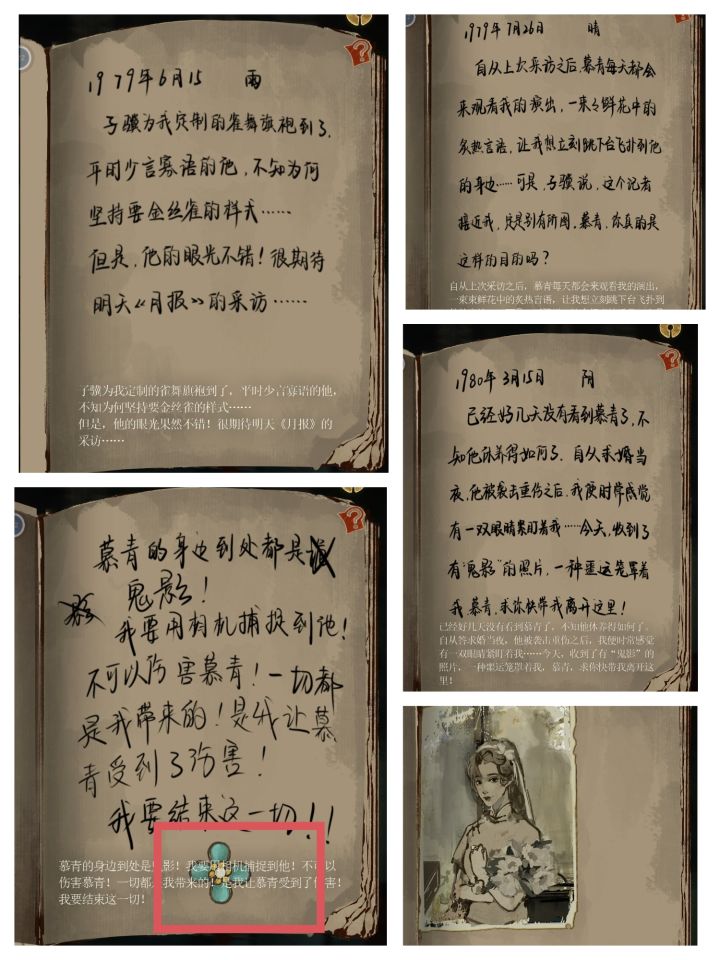 1979年6月15 雨
子骥为我定制的雀舞旗袍到了，
平时少言寡语的他，不知为何
坚持要金丝雀的样式……
但是，他的眼光不错！很期待
明天《月报》的采访……
子骥为我定制的雀舞旗袍到了，平时少言寡语的他，
不知为何坚持要金丝雀的样式……
但是，他的眼光果然不错！很期待明天《月报》的
采访……
慕青的身边到处都是
鬼影！
我要用相机捕捉到他！
不可以伤害慕青！一切都
是我带来的！是我让慕
青受到了伤害！
我要结束这一切！！
慕青的身边到处是鬼影！我要用相机捕捉到他！不可以
伤害慕青！一切都是我带来的！是我让慕青受到了伤害！
我要结束这一切！
1979年7月26日 晴
自从上次采访之后，慕青每天都会
来观看我的演出，一束束鲜花中的
炙热言语，让我想立刻跳下台飞扑到他
的身边……可是，子骥说，这个记者
接近我，定是别有所图，慕青，你真的是
这样的目的吗？
自从上次采访之后，慕青每天都会来观看我的演出，
一束束鲜花中的炙热言语，让我想立刻跳下台飞扑到
1980年3月15日 阴
已经好几天没有看到慕青了，不
知他休养得如何了．自从求婚当
夜，他被袭击重伤之后，我便时常感觉
有一双眼睛紧盯着我……今天，收到了
有“鬼影”的照片，一种噩运笼罩着
我慕青，求你快带我离开这里！
已经好几天没有看到慕青了，不知他休养得如何了。
自从答求婚当夜，他被袭击重伤之后，我便时常感觉
有一双眼睛紧盯着我……今天，收到了有“鬼影”的
照片，一种噩运笼罩着我，慕青，求你快带我离开这
里！